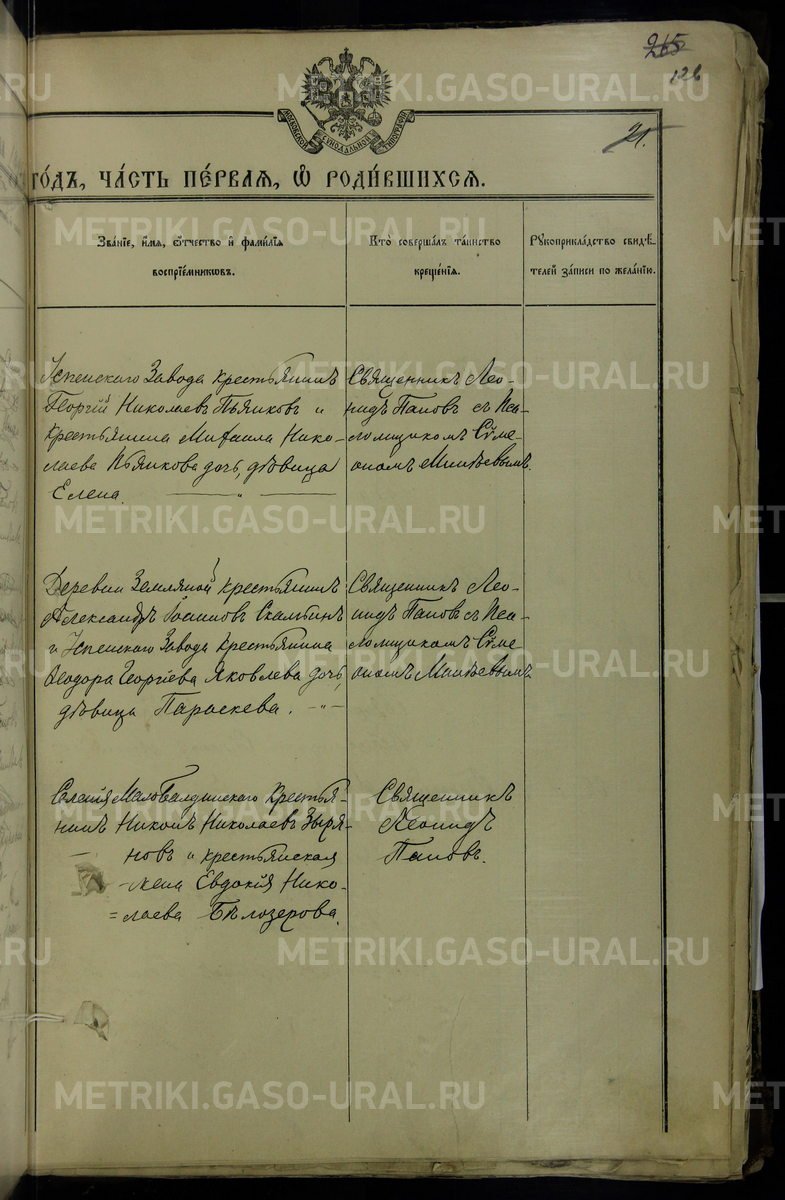 265
126
21.
МОСКОВСКОЙ СУНОДАЛЬНОЙ ТИПОГРАФІИ
годъ, ча́сть пе́рваѧ, ѡ҆ роди́вшихсѧ.
Зва́нїе, и҆́мѧ, ѻ҆́тчество и҆ фами́лїѧ
воспрїе́мникѡвъ.
Кто̀ соверша́лъ та́инство
креще́нїѧ.
Рꙋкоприкла́дство свидѣ́-
телей за́писи по жела́нїю.
Успенскаго Завода крестьянинъ
Георгій Николаевъ Пьянковъ и
крестьянина Михаила Нико-
лаева Пьянкова дочь, дѣвица
Елена.
Священникъ Лео-
нидъ Паповъ съ Пса-
ломщикомъ Сѵме-
ономъ Минѣевымъ.
Деревни Земляной крестьянинъ
Александръ Іоанновъ Скамбинъ
и Успенскаго Завода крестьянина
Ѳеодора Георгіева Яковлева дочь,
дѣвица Параскева.
Священникъ Лео-
нидъ Паповъ съ Пса-
ломщикомъ Сѵме
ономъ Минѣевымъ
Селенія Малобалдинскаго крестья-
нинъ Никонъ Николаевъ Зыря-
новъ и крестьянская
жена Евдокія Нико-
=лаева Бѣлозерова.
Священникъ
Леонидъ
Паповъ.
METRIKI.GASO-URAL.RU